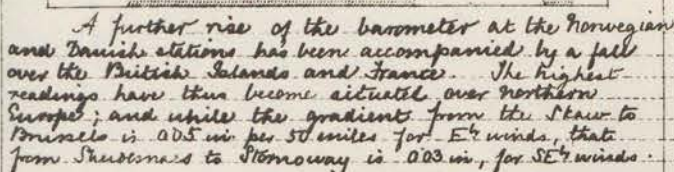 A further rise of the barometer at the Norwegian
and Danish stations has been accompanied by a fall
over the British Islands and France. The highest
readings have thus become situated over northern
Europe; and while the gradient from the Skaw to
Brussels is 0.05 in per 50 miles for Ely winds, that
from Skudesnaes to Stornoway is 0.03 in, for SEly winds.